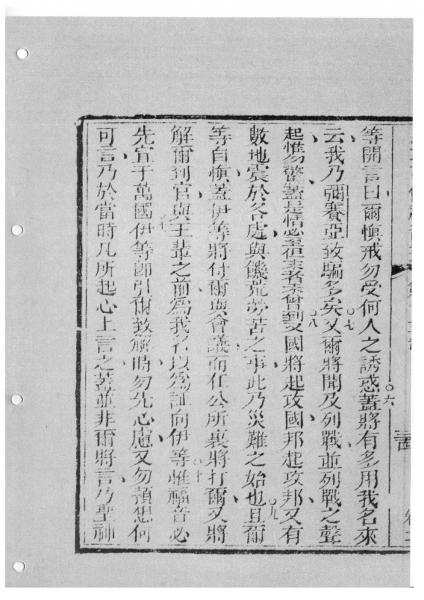 等開言曰爾慎戒勿受何人之誘惑蓋將有多用我名來
云我乃彌賽亞致騙多矣又爾將聞及列戰並列戰之聲
起惟勿驚蓋是情必至但末者未曾到又國將起攻國邦起攻邦又有
數地震於各處與饑荒勞苦之事此乃災難之始也且爾
等自慎蓋伊等將付爾與會議而在公所裏將打爾又將
解爾到官與王輩之前為我名以為証向伊等惟福音必
先宜于萬國伊等即引爾致解時勿先心慮又勿預想何
可言乃於當時凡所起心上言之蓋並非爾將言乃聖神